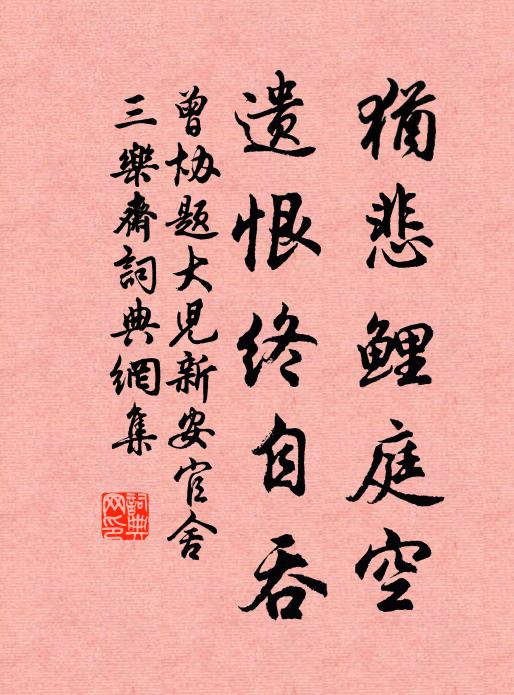 猶悲鯉庭空
遺恨終自吞
曾協題大兒新安官舍
三樂齋詞典網集
詞典網印